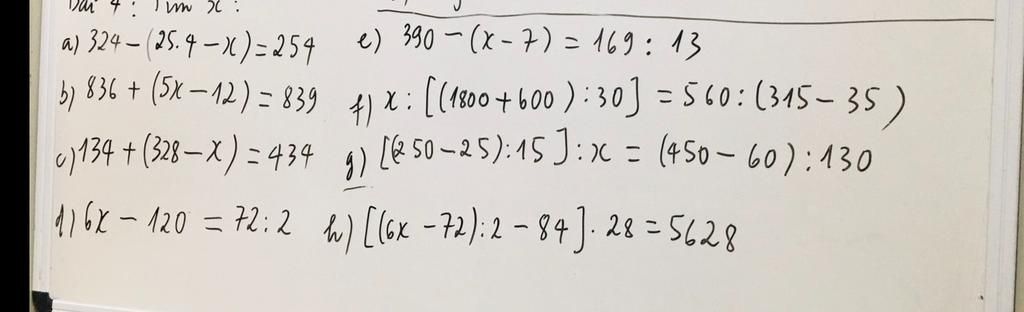 Bài 4: Tìm x:
a) 324 - (25.4 - x) = 254
b) 836 + (5x - 12) = 839
c) 134 + (328 - x) = 434
d) 6x - 120 = 72 : 2
e) 390 - (x - 7) = 169 : 13
f) x : [(1800 + 600) : 30] = 560 : (315 - 35)
g) [(250 - 25) : 15] : x = (450 - 60) : 130
h) [(6x - 72) : 2 - 84] . 28 = 5628